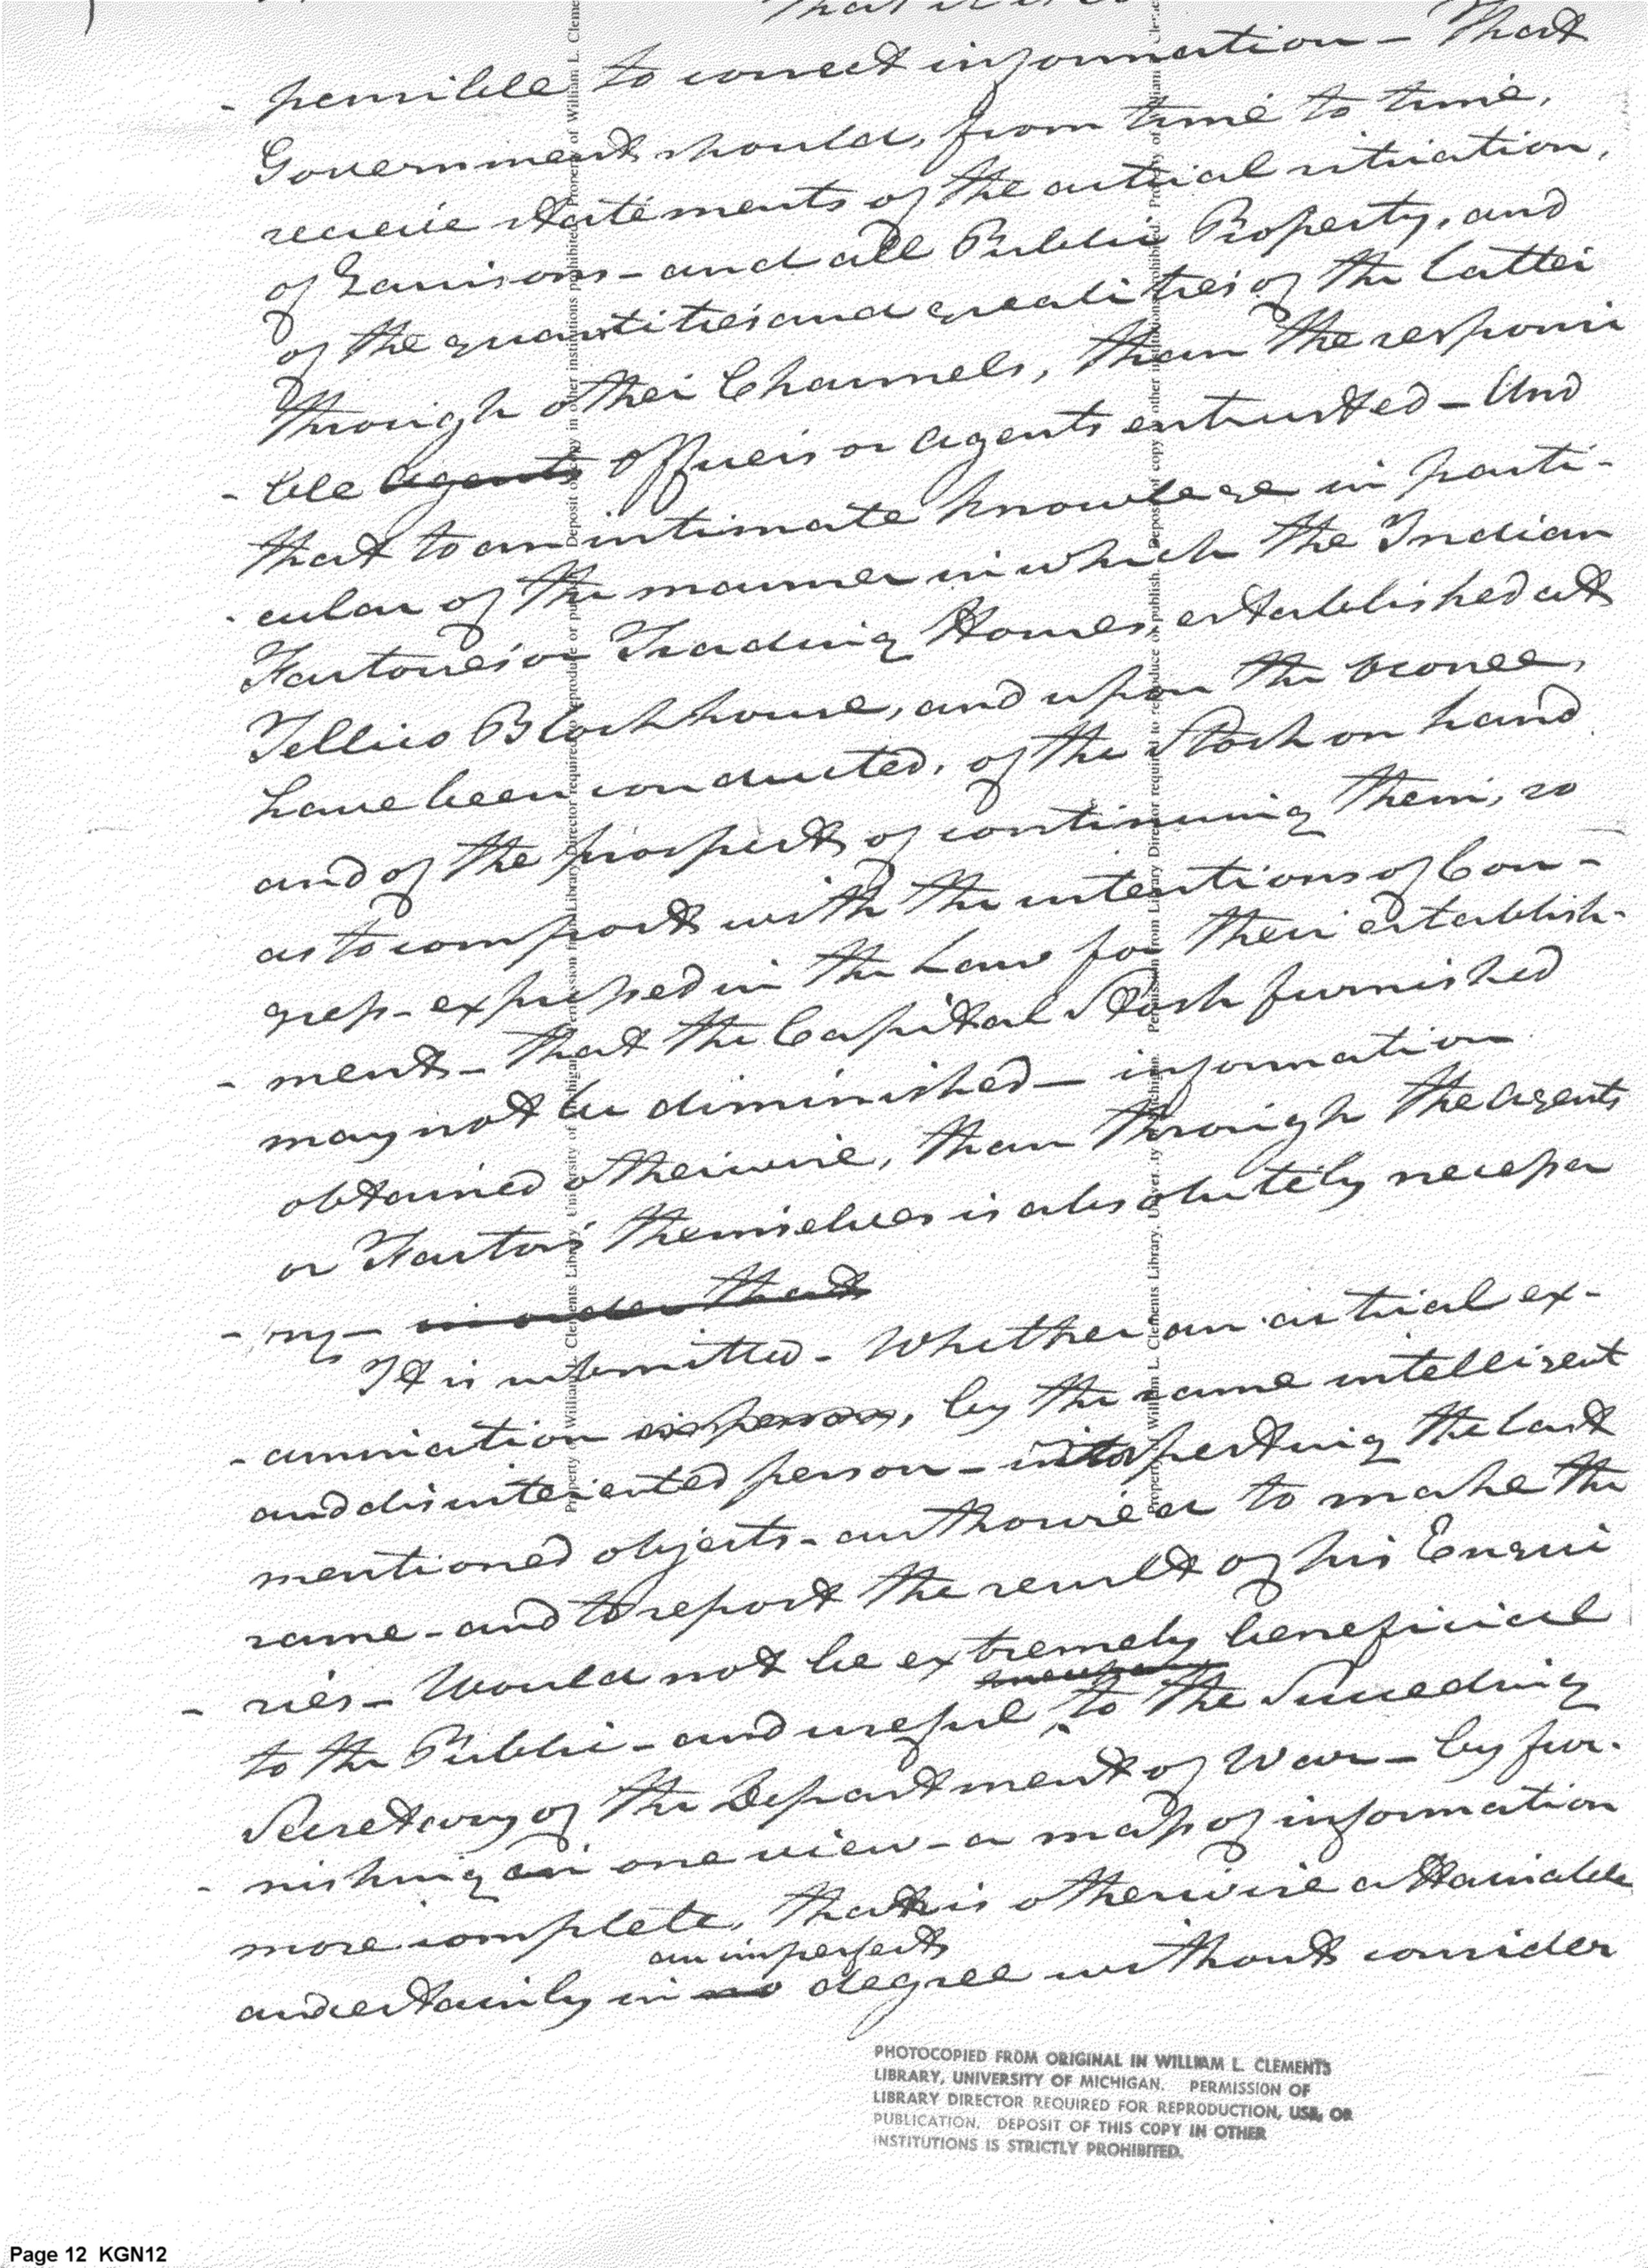 That it is
- pensible to correct information - That
Government should, from time to time,
receive statements of the actual situation,
of Garrisons - and all Public Property, and
of the quantities and qualities of the latter
through other Channels, than the responsi
- ble agents officers or agents entrusted - And
that to an intimate knowledge in parti-
- cular of the manner in which the Indian
Factories or Trading Houses, established at
Tellico Blockhouse, and upon the Oconee,
have been conducted, of the Stock on hand
and of the prospects of continuing them, so
as to comport with the intentions of Con-
gress - expressed in the Law for their establish-
- ment - that the Capital Stock furnished
may not be diminished - information
obtained otherwise, than through the agents
or Factors themselves is absolutely necessa
- ry - in order that
It is submitted - Whether an actual ex-
- amination in person, by the same intelligent
and disinterested person - into specting the last
mentioned objects - authorised to make the
same - and to report the result of his Enqui
- ries - Would not be extremely beneficial
to the Public - and useful to the Succeeding
Secretary of the Department of War - by fur-
- nishing in one view - a map of information
more complete, than is otherwise attainable
an imperfect
and certainly in no degree without consider
PHOTOCOPIED FROM ORIGINAL IN WILLIAM L. CLEMENTS
LIBRARY, UNIVERSITY OF MICHIGAN. PERMISSION OF
LIBRARY DIRECTOR REQUIRED FOR REPRODUCTION, USE, OR
PUBLICATION. DEPOSIT OF THIS COPY IN OTHER
INSTITUTIONS IS STRICTLY PROHIBITED.
Property of William L. Clements Library, University of Michigan. Permission from Library Director required to reproduce or publish. Deposit of copy in other institutions prohibited.
Property of William L. Clements Library, University of Michigan. Permission from Library Director required to reproduce or publish. Deposit of copy in other institutions prohibited.
Page 12 KGN12